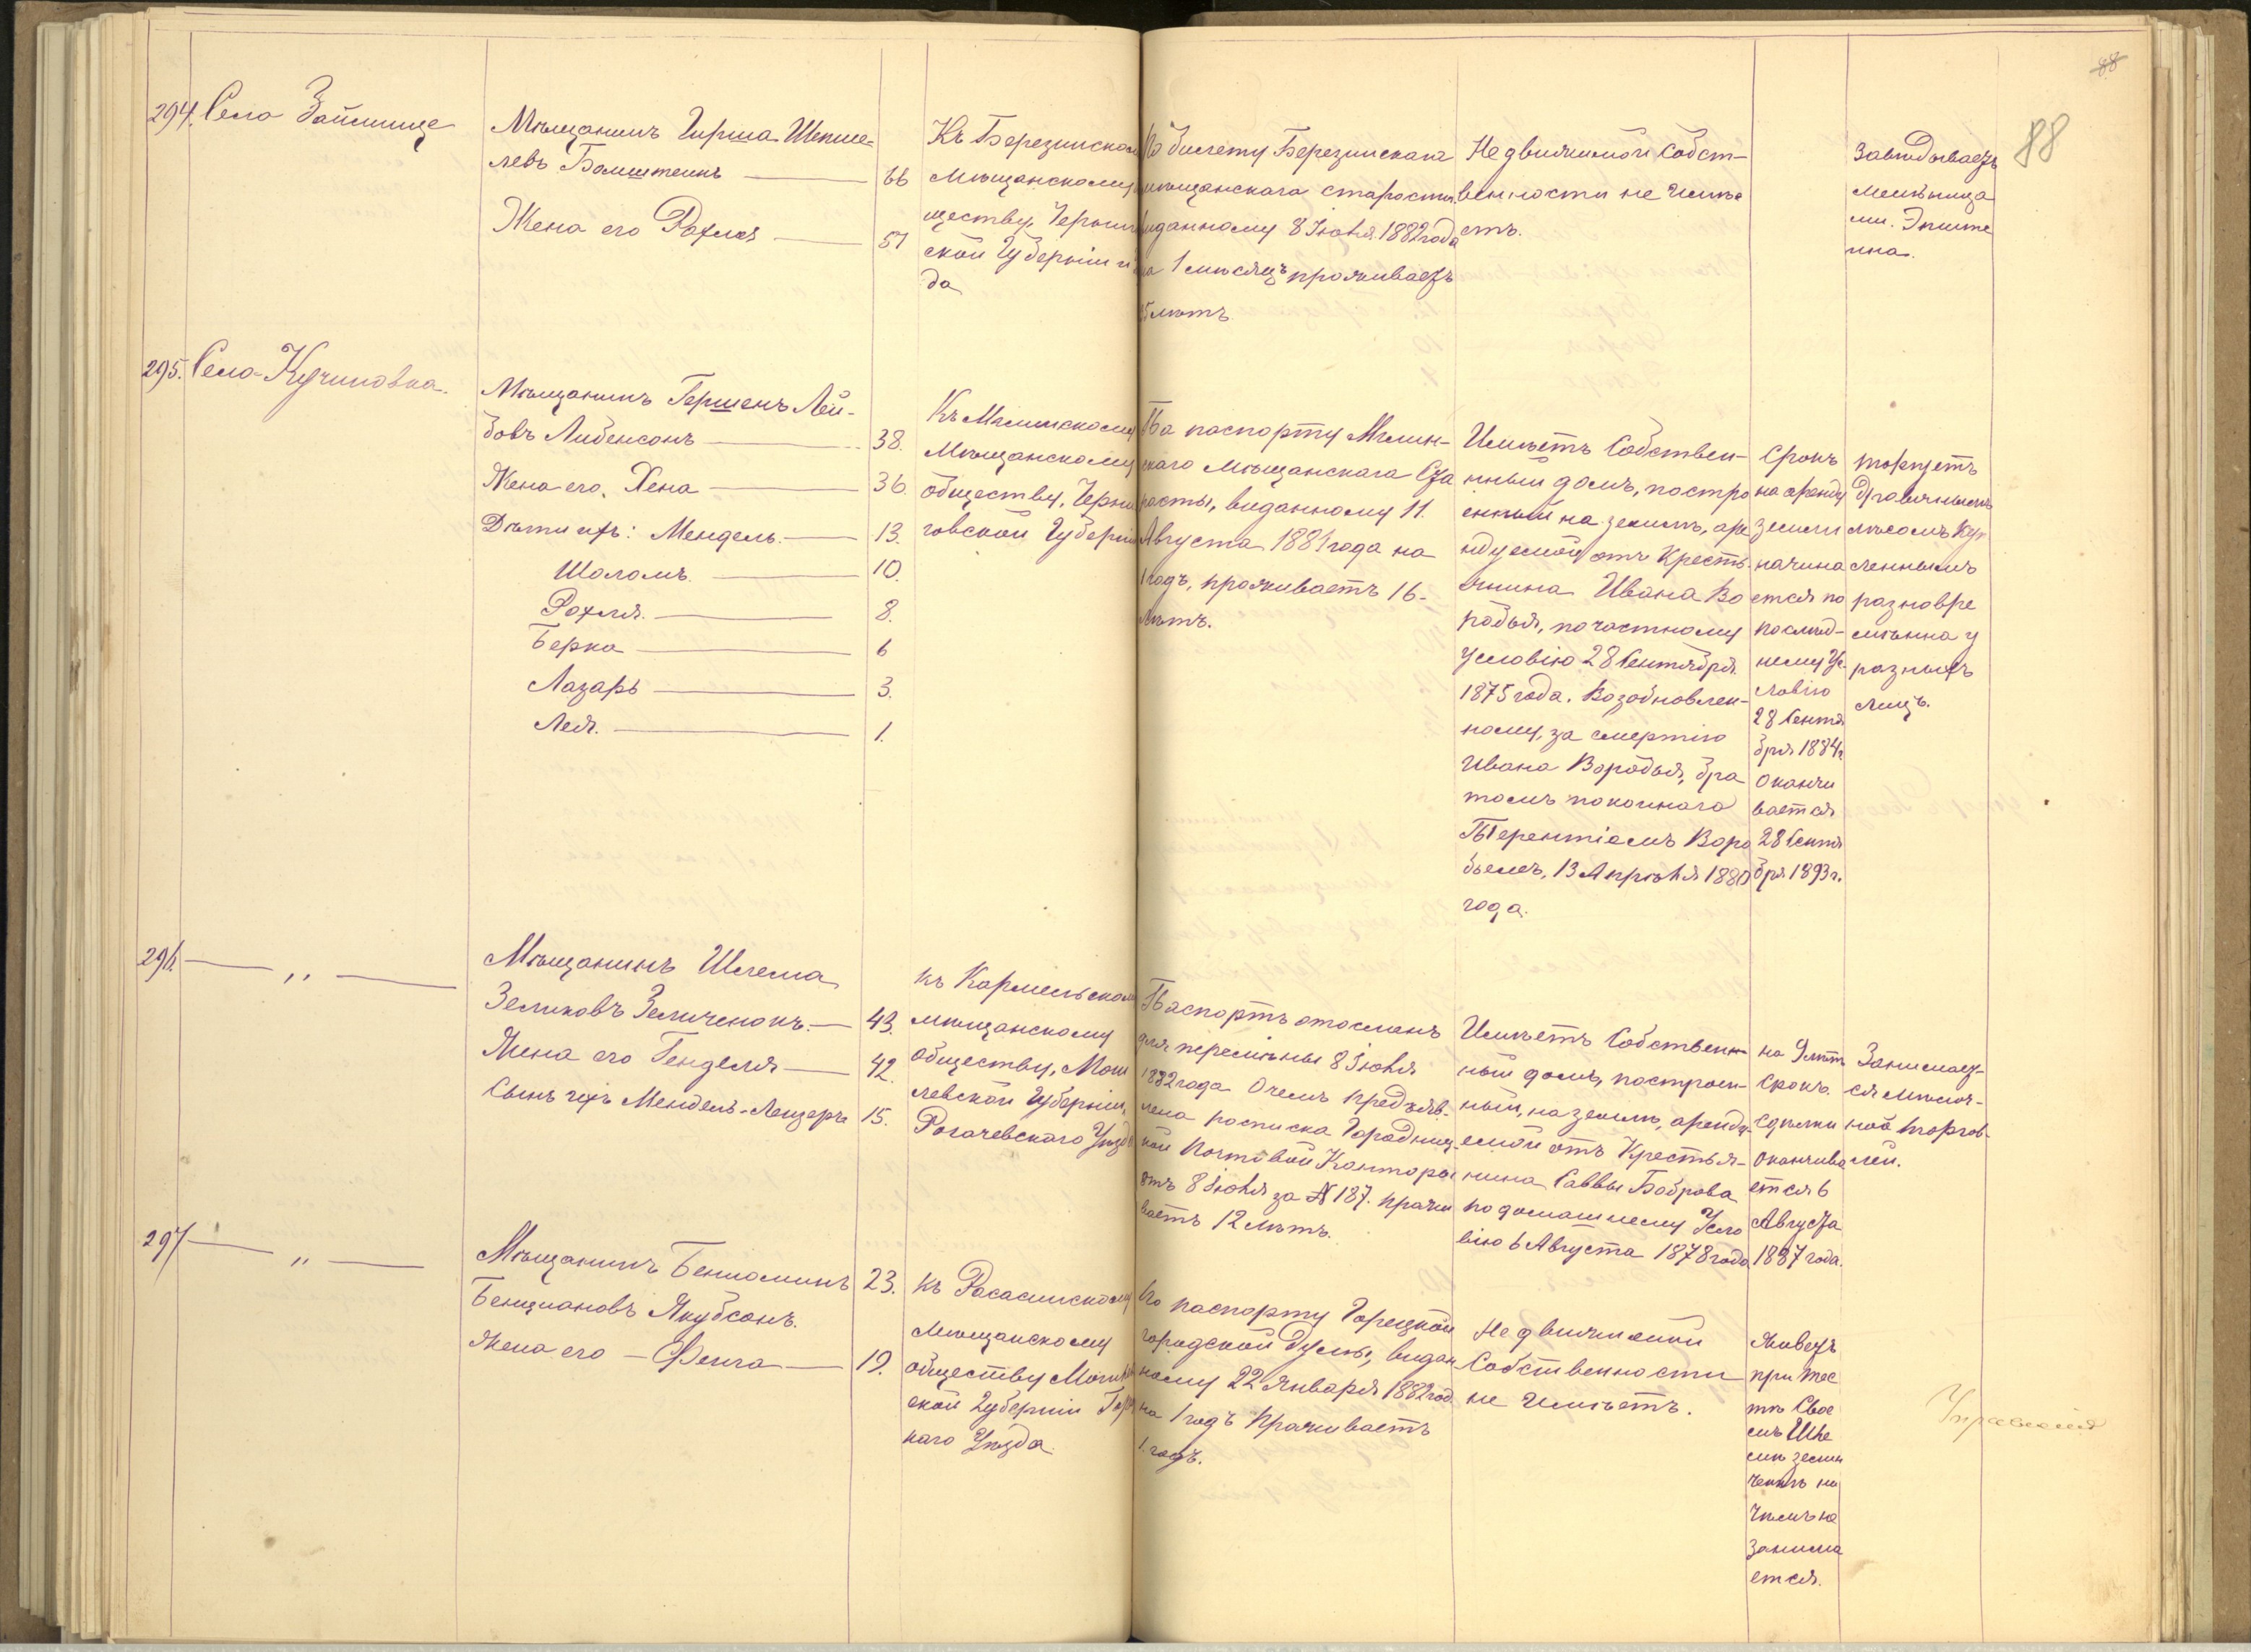 88
88
294. Село Займище
Мѣщанинъ Гирша Шепше-
левъ Бомштеинъ — 66
Жена его Рохля — 57
Къ Березинском
Мѣщанскому
ществу, Черниг
ской Губерніи
да
По билету Березинскаго
мѣщанскаго старосты
выданному 8 Іюня 1882 года
на 1 мѣсяцъ проживаетъ
5 лѣтъ
Недвижимой Собст-
венности не имѣе
етъ.
Завѣдываетъ
мельница
ми. Эпште
ина.
295. Село Кучиновка.
Мѣщанинъ Гершенъ Лей-
бовъ Либенсонъ — 38.
Жена его, Хена — 36.
Дѣти ихъ: Мендель. — 13.
Шоломъ. — 10.
Рохля. — 8.
Берка — 6
Лазарь — 3.
Лея. — 1.
Къ Мглинскому
Мѣщанскому
обществу, Черни
говской Губерніи
Па паспорту Мглин-
скаго Мѣщанскаго Ста
росты, виданному 11.
Августа 1881 года на
1 годъ, проживаетъ 16-
лѣтъ.
Имѣетъ Собствен-
нный домъ, постро
енный на землѣ, аре
ндуемой отъ Кресть-
янина Ивана Во
робья, по частному
условію 28 Сентября
1875 года. Возобновлен-
ному, за смертію
Ивана Воробья, бра
томъ покойнаго
Терентіемъ Воро
бьемъ, 13 Апрѣля 1880
года.
Срокъ
на аренду
земли
начина
ется по
послѣд-
нему Ус-
ловію
28 Сентя
бря 1884 г
Окончи
вается
28 Сентя
бря 1893 г.
торгуетъ
дровянымъ
лѣсомъ ку
пленнымъ
разновре
мѣнна у
разныхъ
лицъ.
296. — „ —
Мѣщанинъ Шлема
Зеликовъ Зеличенокъ. — 43.
Жена его Генделя — 42.
Сынъ ихъ Мендель-Лейзеръ 15.
къ Кармельском
мѣщанскому
обществу, Моги
левской Губерніи,
Рогачевскаго Уѣзда
Паспортъ отосланъ
для перемѣны 8 Іюня
1882 года О чемъ предъяв-
лена росписка Городниц-
кой Почтовой Конторы
отъ 8 Іюня за № 187. прожи
ваетъ 12 лѣтъ.
Имѣетъ Собствен-
ный домъ, построен-
ный, на землѣ, аренду-
емой отъ Крестья-
нина Саввы Боброва
по домашнему Усло
вію 6 Августа 1878 года
на 9 лѣт
Срокъ.
Сдѣлки
оканчива
ется 6
Августа
1887 года.
Занимает-
ся мѣлоч-
ной торгов-
лей.
297 — „ —
Мѣщанинъ Бениоминъ 23.
Бенціановъ Якубсонъ.
Жена его — Фейга — 19.
къ Расасинскому
Мѣщанскому
обществу Могилев
ской Губерніи Гор
каго Уѣзда.
По паспорту Горецкой
городской Думы, видан
ному 22 Января 1882 год
на 1 годъ проживаетъ
1. годъ.
Недвижимой
Собственности
не имѣетъ.
Живетъ
при тес
тѣ Свое
мъ Шле
мѣ Зели
ченкѣ ни
чѣмъ не
занима
ется.